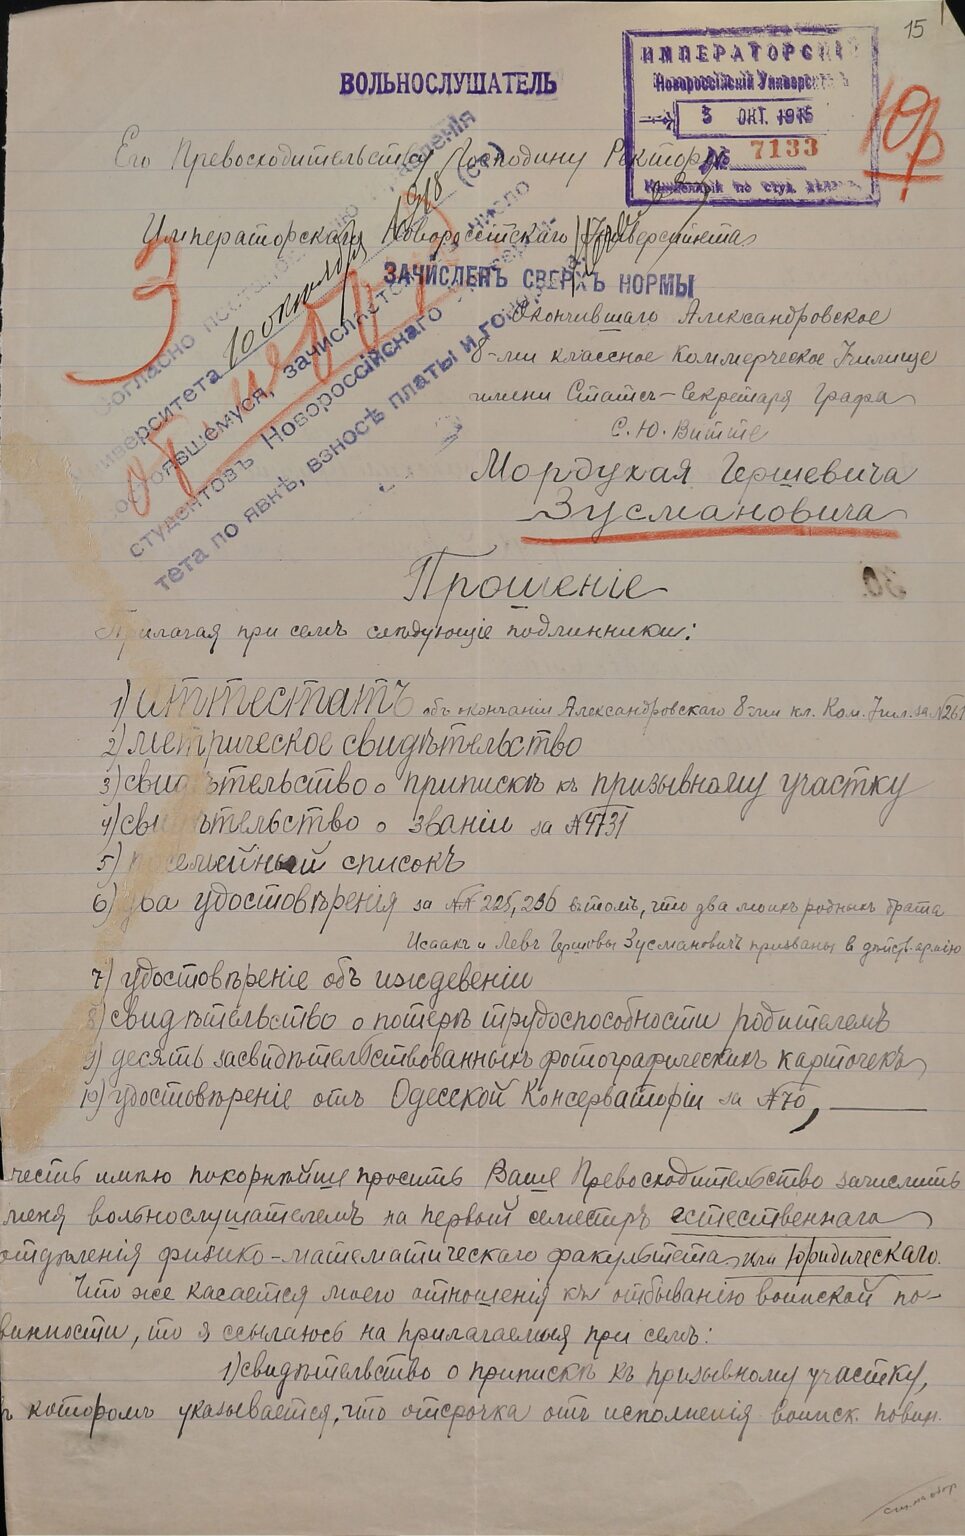 15
ВОЛЬНОСЛУШАТЕЛЬ
ИМПЕРАТОРСКІЙ
Новороссійскій Университетъ
3 ОКТ. 1915
№ 7133
Юр
Его Превосходительству Господину Ректору
Императорскаго Новороссійскаго Университета
ЗАЧИСЛЕНЪ СВЕРХЪ НОРМЫ
Согласно
Университета 10 октября
состоявшемуся, зачисляется
студентовъ Новороссійскаго
тета по явкѣ, взносѣ платы и
Окончившаго Александровское
8-ми классное Коммерческое Училище
имени Статсъ-Секретаря Графа
С. Ю. Витте
Мордухая Гершевича
Зусмановича
Прошеніе
Прилагая при семъ слѣдующіе подлинники:
1) аттестатъ объ окончаніи Александровскаго 8-ми кл. Ком. Учил. за №261
2) метрическое свидѣтельство
3) свидѣтельство о припискѣ къ призывному участку
4) свидѣтельство о званіи за №4731
5) посемейный списокъ
6) два удостовѣренія за №№ 225, 236 въ томъ, что два моихъ родныхъ брата
Исаакъ и Левъ Гершовы Зусмановичъ призваны в дѣйств. армію
7) удостовѣреніе объ иждевеніи
8) свидѣтельство о потерѣ трудоспособности родителемъ
9) десять засвидѣтельствованныхъ фотографическихъ карточекъ
10) удостовѣреніе отъ Одесской Консерваторіи за №70,
честь имѣю покорнѣйше просить Ваше Превосходительство зачислить
меня вольнослушателемъ на первый семестръ естественнаго
отдѣленія физико-математическаго факультета или Юридическаго.
Что же касается моего отношенія къ отбыванію воинской по-
винности, то я ссылаюсь на прилагаемыя при семъ:
1) свидѣтельство о припискѣ къ призывному участку,
в которомъ указывается, что отсрочка отъ исполненія воинск. повин.
см. на обор.